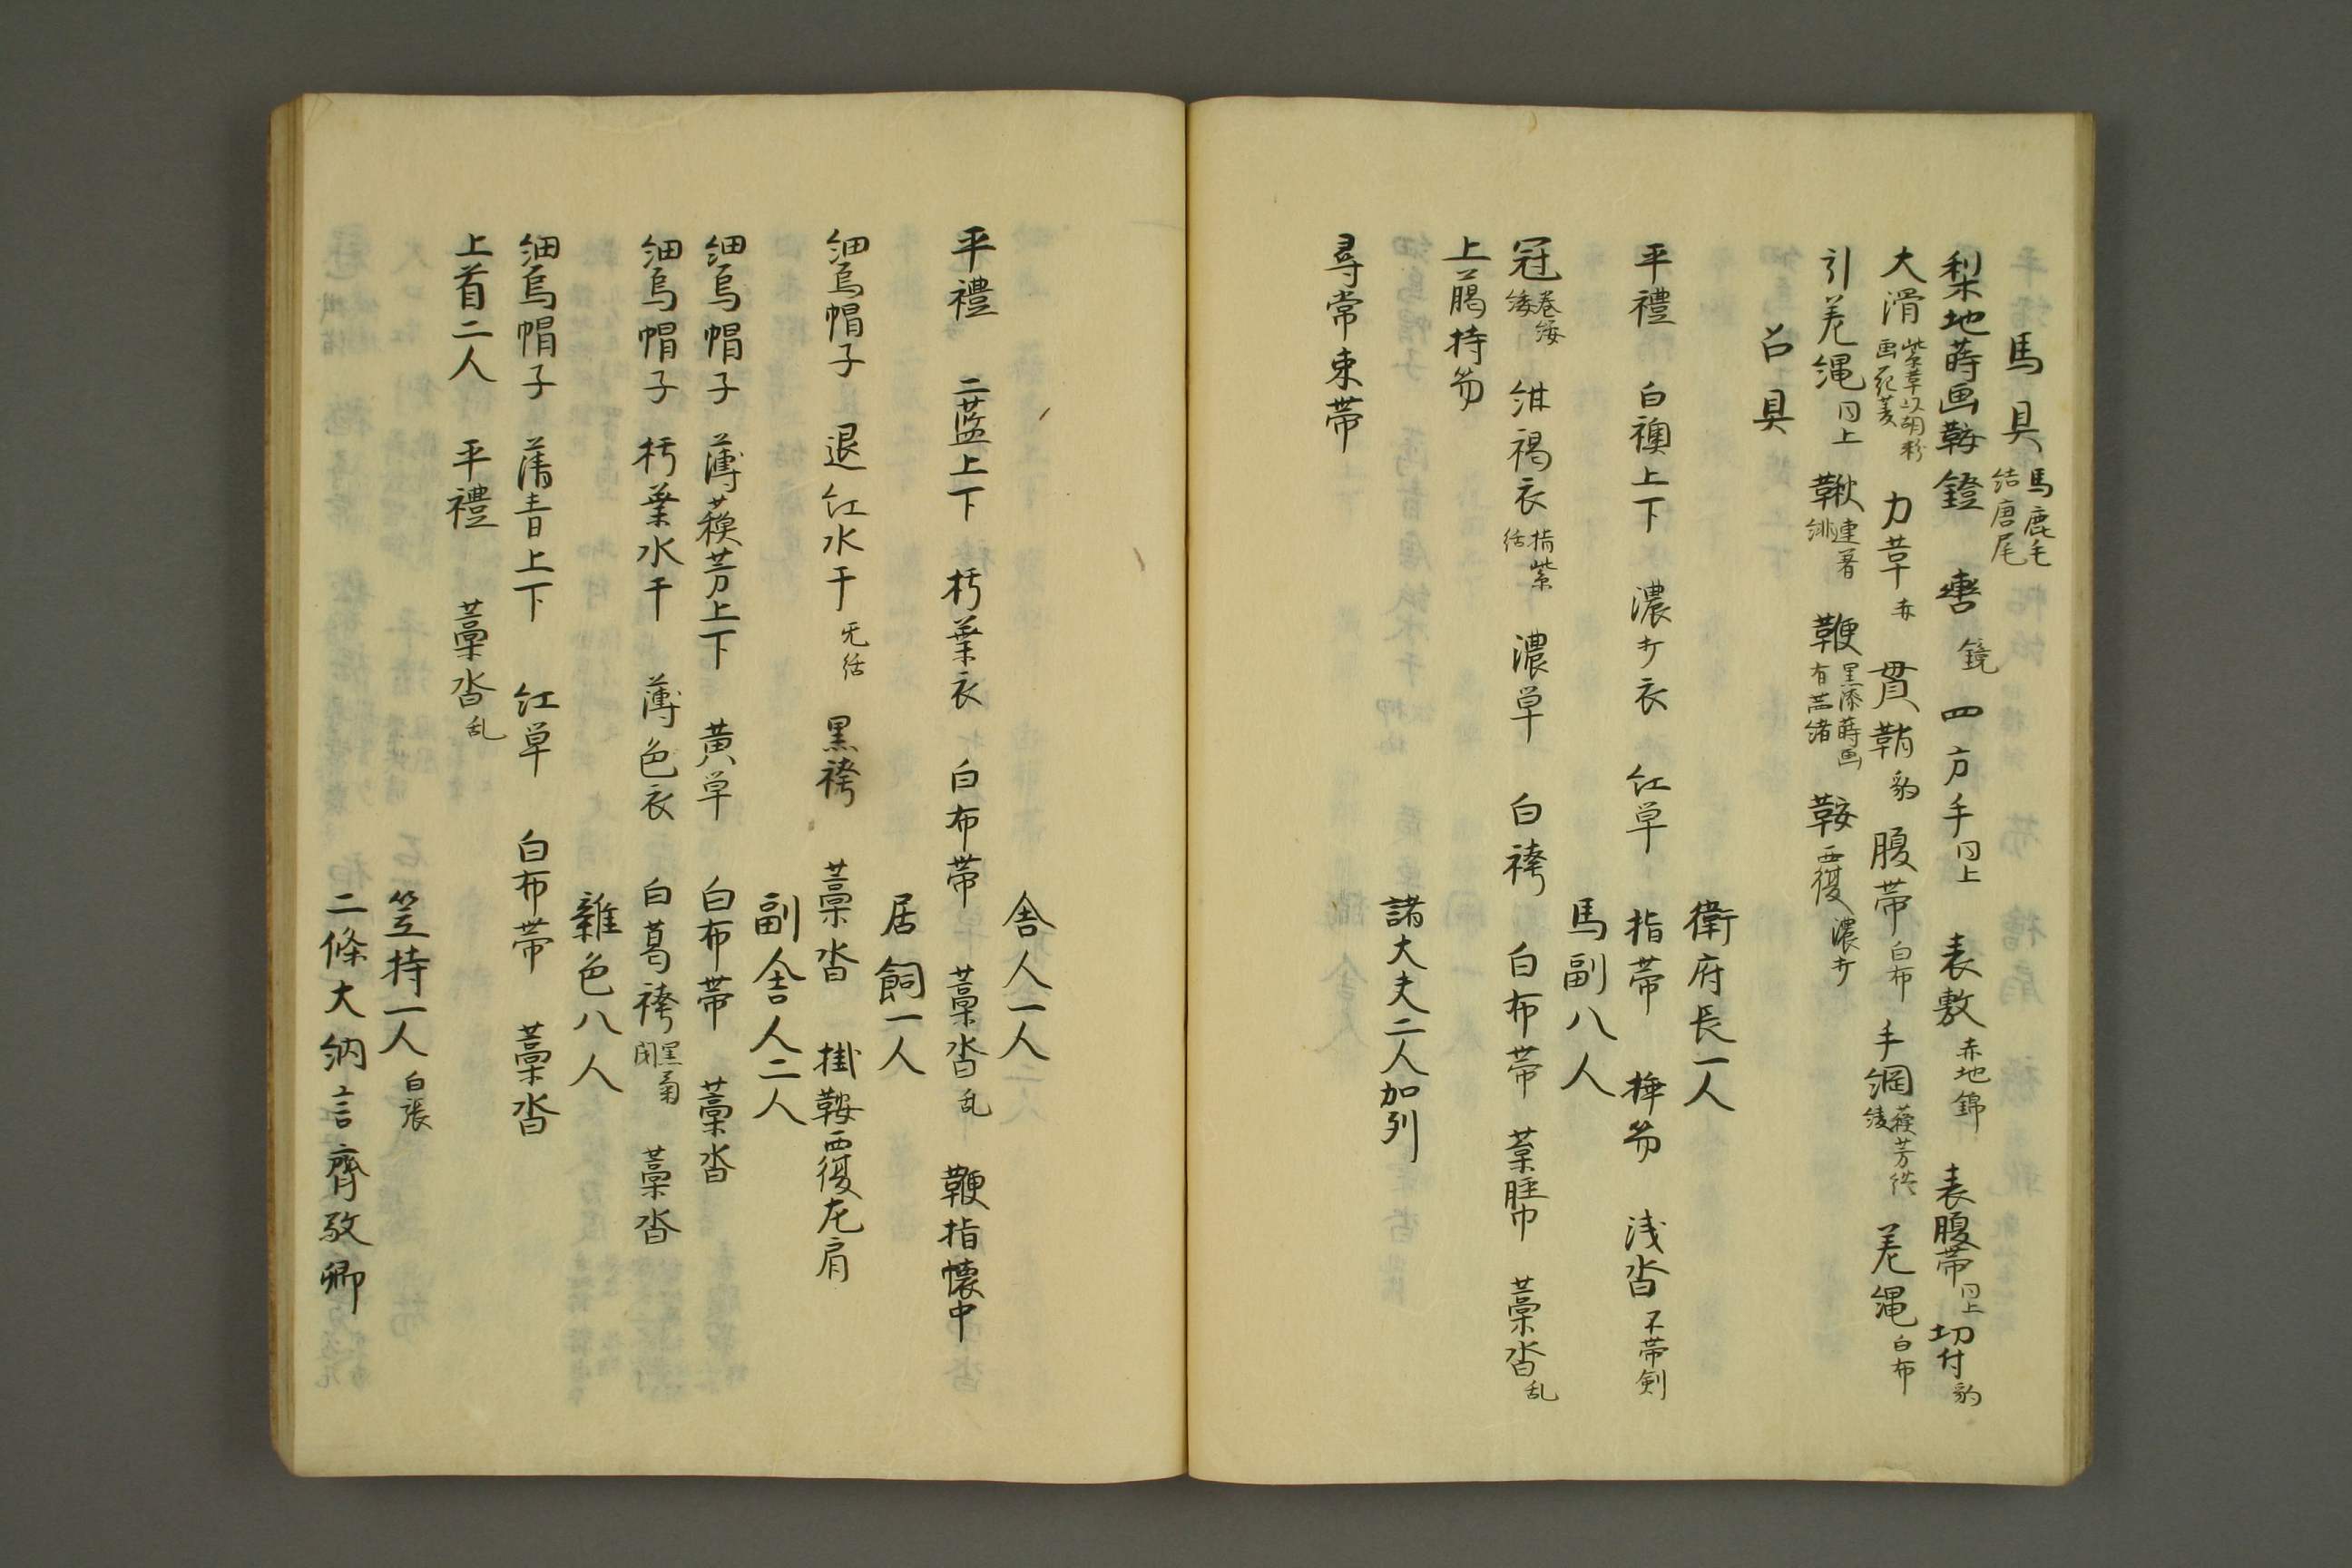 馬具 馬鹿毛結唐尾
梨地蒔画鞍鐙 轡鏡 四方手同上 表敷赤地錦 表腹帯同上 切付豹
大滑紫革以胡粉画死菱 力革赤 貫鞘豹 腹帯白布 手綱蘇芳綾 差縄白布
引差縄同上 鞦連著 鞭黒漆蒔画有 鞍覆濃打
召具
衛府長一人
平禮 白襖上下 濃打衣 紅単 指帯 挿笏 浅沓不帯剣
馬副八人
冠巻纓緌 紺褐衣指紫括 濃単 白袴 白布帯 葉脛巾 藁沓乱
上臈持笏
諸大夫二人加列
尋常束帯
舎人一人
平禮 二藍上下 朽葉衣 白布帯 藁沓乱 鞭指懐中
居飼一人
細烏帽子 退紅水干无括 黒袴 藁沓 掛鞍覆左肩
副舎人二人
細烏帽子 薄蘇芳上下 黄単 白布帯 藁沓
細烏帽子 朽葉水干 薄色衣 白葛袴黒菊閉 藁沓
雑色八人
細烏帽子 薄青上下 紅単 白布帯 藁沓
上首二人 平禮 藁沓乱
笠持一人 白張
二條大納言齊敬卿